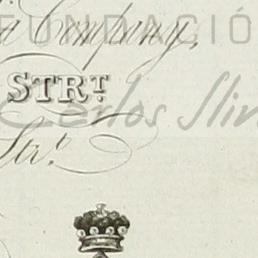 FUNDACIÓ
Company,
STRT
Carlos Slim
Str.t